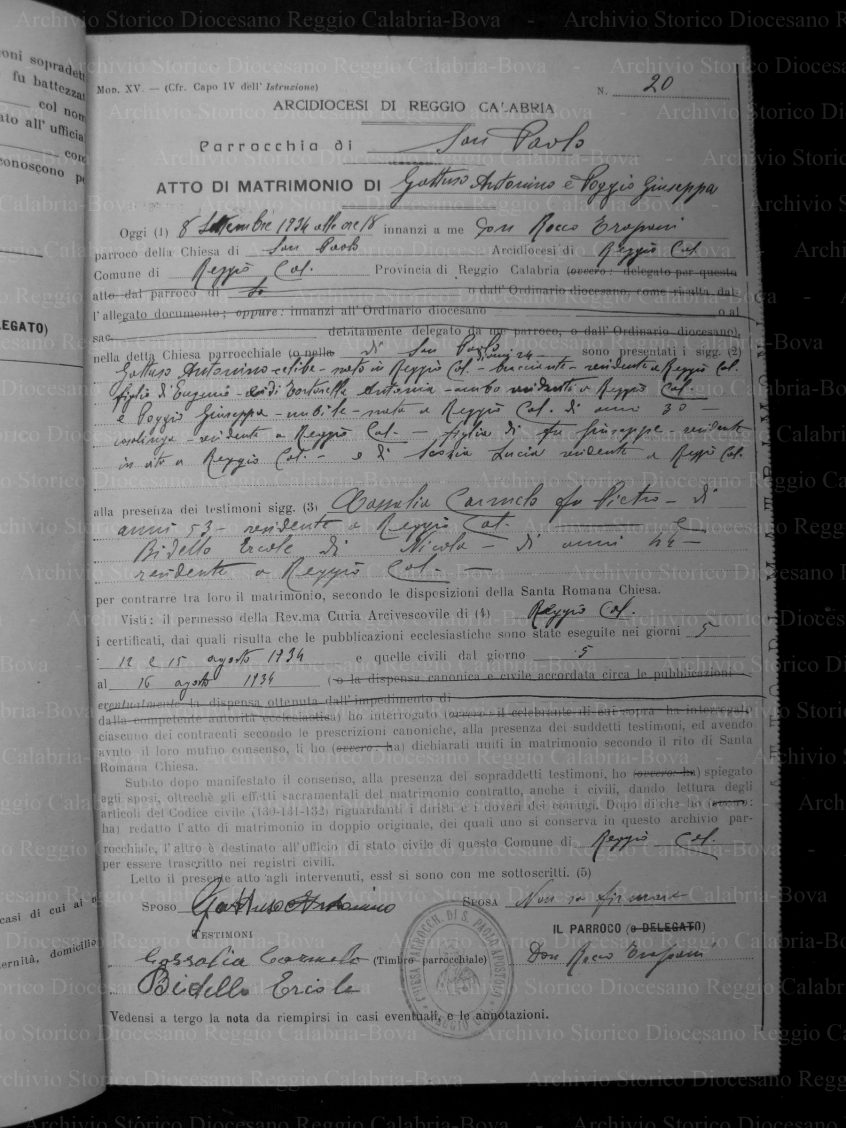 oni sopradetti
fu battezzat
col nom
ato all' ufficial
com
conoscono pe
LEGATO)
casi di cui ai n
ernità, domicilio
Mod. XV. — (Cfr. Capo IV dell' Istruzione)
N. 20
ARCIDIOCESI DI REGGIO CALABRIA
Parrocchia di San Paolo
ATTO DI MATRIMONIO DI Gattuso Antonino e Poggio Giuseppa
Oggi (1) 8 Settembre 1934 alle ore 18 innanzi a me Don Rocco Trapani
parroco della Chiesa di San Paolo Arcidiocesi di Reggio Cal.
Comune di Reggio Cal. Provincia di Reggio Calabria (ovvero: delegato per questo
atto dal parroco di o dall' Ordinario diocesano, come risulta dal-
l'allegato documento; oppure: innanzi all' Ordinario diocesano o al
sac. debitamente delegato da me parroco, o dall' Ordinario diocesano),
nella detta Chiesa parrocchiale (o nella di San Paolo sono presentati i sigg. (2)
Gattuso Antonino celibe - nato in Reggio Cal. - bracciante - residente a Reggio Cal. anni 24
figlio di Eugenio - e di Tortorella Antonia - ambo residenti a Reggio Cal.
e Poggio Giuseppa - nubile - nata a Reggio Cal. di anni 30 -
casalinga - residente a Reggio Cal. - figlia di fu Giuseppe - residente
in vita a Reggio Cal. - e di Lucia residente a Reggio Cal.
alla presenza dei testimoni sigg. (3) Cassalia Carmelo fu Pietro - di
anni 53 - residente a Reggio Cal. e
Bidello Ercole di Nicola - di anni 44 -
residente a Reggio Cal. -
per contrarre tra loro il matrimonio, secondo le disposizioni della Santa Romana Chiesa.
Visti: il permesso della Rev.ma Curia Arcivescovile di (4) Reggio Cal.
i certificati, dai quali risulta che le pubblicazioni ecclesiastiche sono state eseguite nei giorni 5
12 e 15 agosto 1934 e quelle civili dal giorno 5
al 16 agosto 1934 (o la dispensa canonica e civile accordata circa le pubblicazioni
eventualmente la dispensa ottenuta dall' impedimento di
dalla competente autorità ecclesiastica) ho interrogato (ovvero: il celebrante di cui sopra ha interrogato
ciascuno dei contraenti secondo le prescrizioni canoniche, alla presenza dei suddetti testimoni, ed avendo
avuto il loro mutuo consenso, li ho (ovvero: ha) dichiarati uniti in matrimonio secondo il rito di Santa
Romana Chiesa.
Subito dopo manifestato il consenso, alla presenza dei sopraddetti testimoni, ho (ovvero: ha) spiegato
agli sposi, oltrechè gli effetti sacramentali del matrimonio contratto, anche i civili, dando lettura degli
articoli del Codice civile (130-131-132) riguardanti i diritti e i doveri dei coniugi. Dopo di che ho (ovvero:
ha) redatto l'atto di matrimonio in doppio originale, dei quali uno si conserva in questo archivio par-
rocchiale, l'altro è destinato all'ufficio di stato civile di questo Comune di Reggio Cal.
per essere trascritto nei registri civili.
Letto il presente atto agli intervenuti, essi si sono con me sottoscritti. (5)
SPOSO Gattuso Antonino SPOSA Non sa firmare
TESTIMONI IL PARROCO (o DELEGATO)
Cassalia Carmelo (Timbro parrocchiale) Don Rocco Trapani
Bidello Ercole
CHIESA PARROCCH. DI S. PAOLO APOSTOLO
REGGIO CAL.
Vedensi a tergo la nota da riempirsi in casi eventuali, e le annotazioni.
Archivio Storico Diocesano Reggio Calabria-Bova